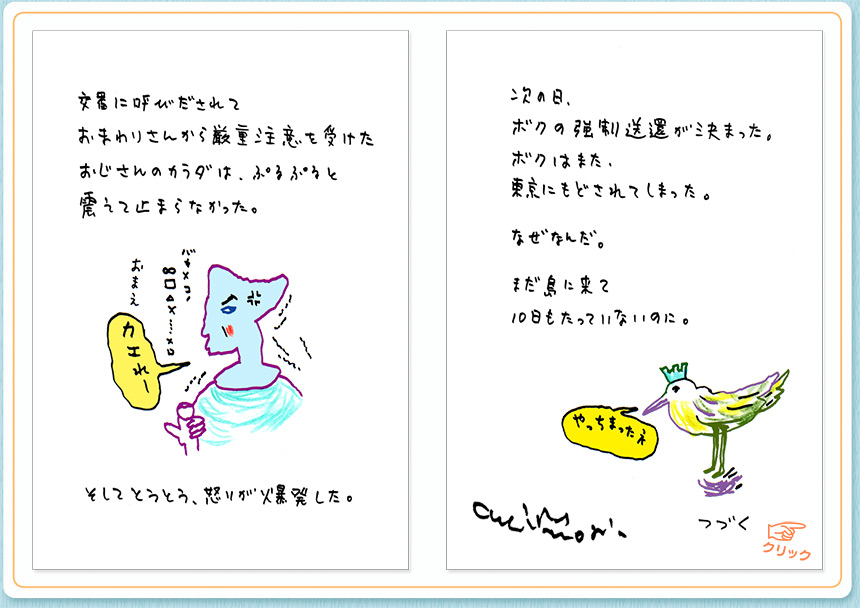 交番に呼びだされて
おまわりさんから厳重注意を受けた
おじさんのカラダは、ぷるぷると
震えて止まらなかった。
おまえ
カエれー
そしてとうとう、怒りが爆発した。
次の日、
ボクの強制送還が決まった。
ボクはまた、
東京にもどされてしまった。
なぜなんだ。
まだ島に来て
10日もたっていないのに。
やっちまったえ
つづく
クリック